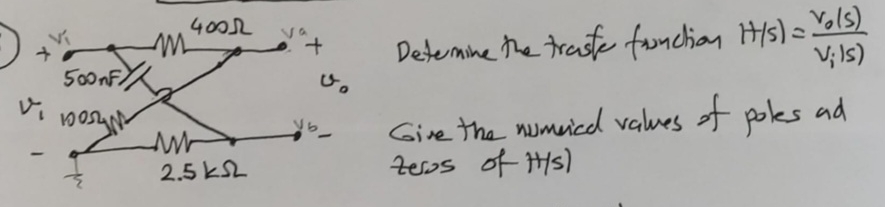 400Ω
+ Vi
Va +
500nF
vo
vi
100Ω
Vb -
-
2.5 kΩ
Determine the trasfe frunction H(s) = Vo(s) / Vi(s)
Give the numerical values of poles ad
zeros of H(s)